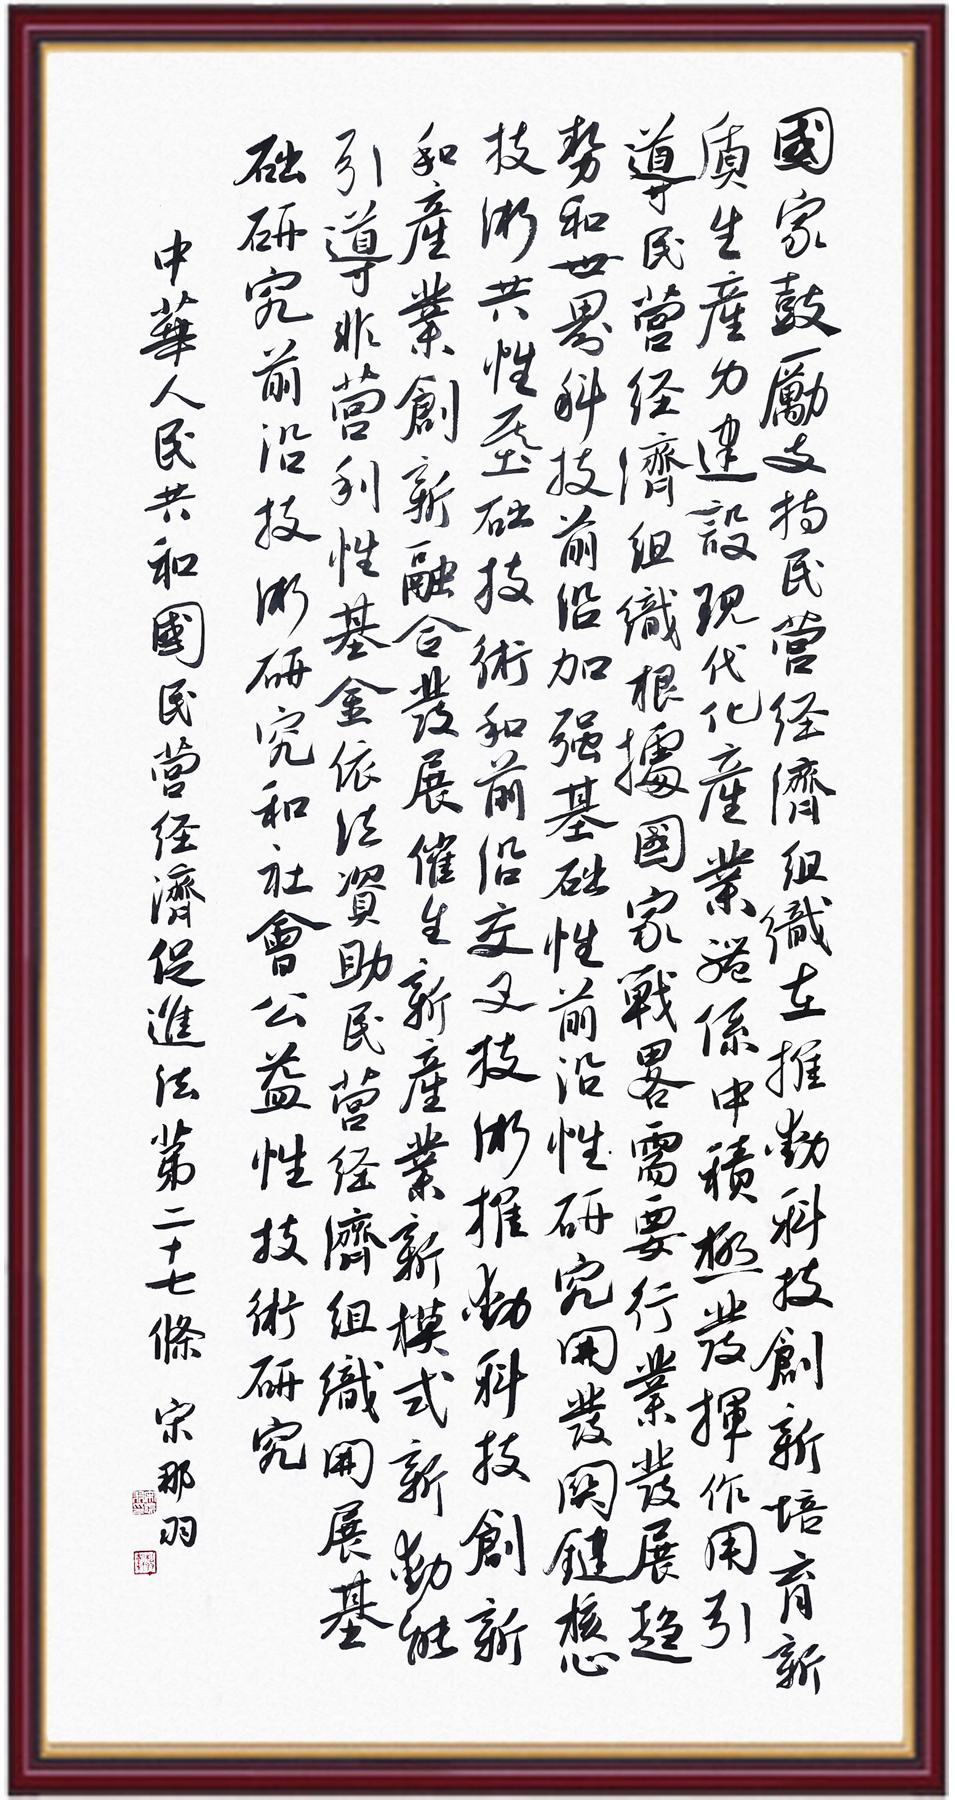 國家鼓勵支持民營经濟組織在推動科技創新培育新
質生産力建設現代化産業體係中積極發揮作用引
導民營经濟組織根據國家戰畧需要行業發展趋
势和世界科技前沿加强基础性前沿性研究開發関鍵核心
技術共性基础技術和前沿交叉技術推動科技創新
和産業創新融合發展催生新産業新模式新動能
引導非营利性基金依法資助民营经濟組織開展基
础研究前沿技術研究和社會公益性技術研究
中華人民共和國民营经濟促進法第二十七條 宋那羽